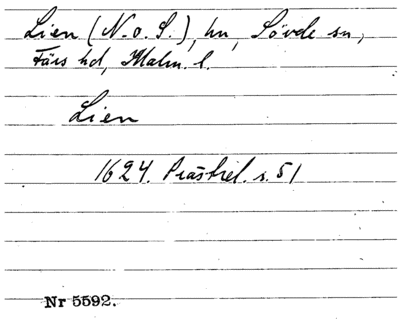 Lien (N. o. S.), hn, Sövde sn,
Färs hd, Malm. l.
Lien
1624. Prästrel. s. 51
Nr 5592.